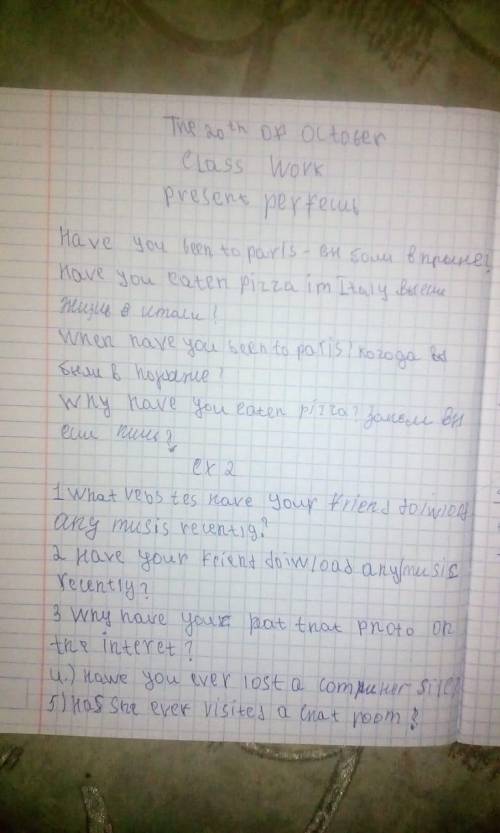 The 20th OF October
Class Work
present perfeсть
Have you been to paris - вы были в
Have you eaten pizza im Italy вы ели
в итали?
When have you been to paris? когода вы
были в
Why have you eaten pizza? зачем вы
ели
ex 2
1 What have your friend
any musis recently?
2 Have your Friend any music
recently?
3 Why have your pat that photo on
the interet?
4.) have you ever lost a
5) Has she ever visites a chat room?